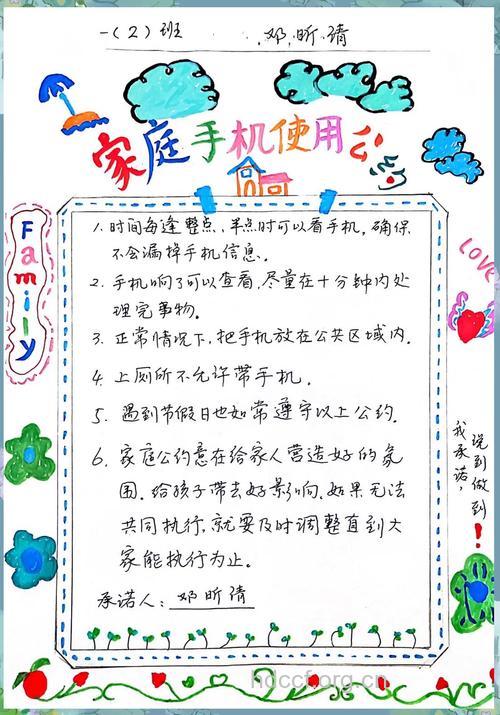 一(2)班 邓昕倩
家庭手机使用公约
1. 时间每逢整点、半点时可以看手机。确保
不会漏掉手机信息。
2. 手机响了可以查看,尽量在十分钟内处
理完事物。
3. 正常情况下,把手机放在公共区域内.
4. 上厕所不允许带手机。
5. 遇到节假日也如常遵守以上公约.
6. 家庭公约意在给家人营造好的氛
围. 给孩子带去好影响. 如果无法
共同执行, 就要及时调整直到大
家能执行为止.
承诺人: 邓昕倩
Family
LOVE
我承诺,
说到做到!
hdccf.org.cn